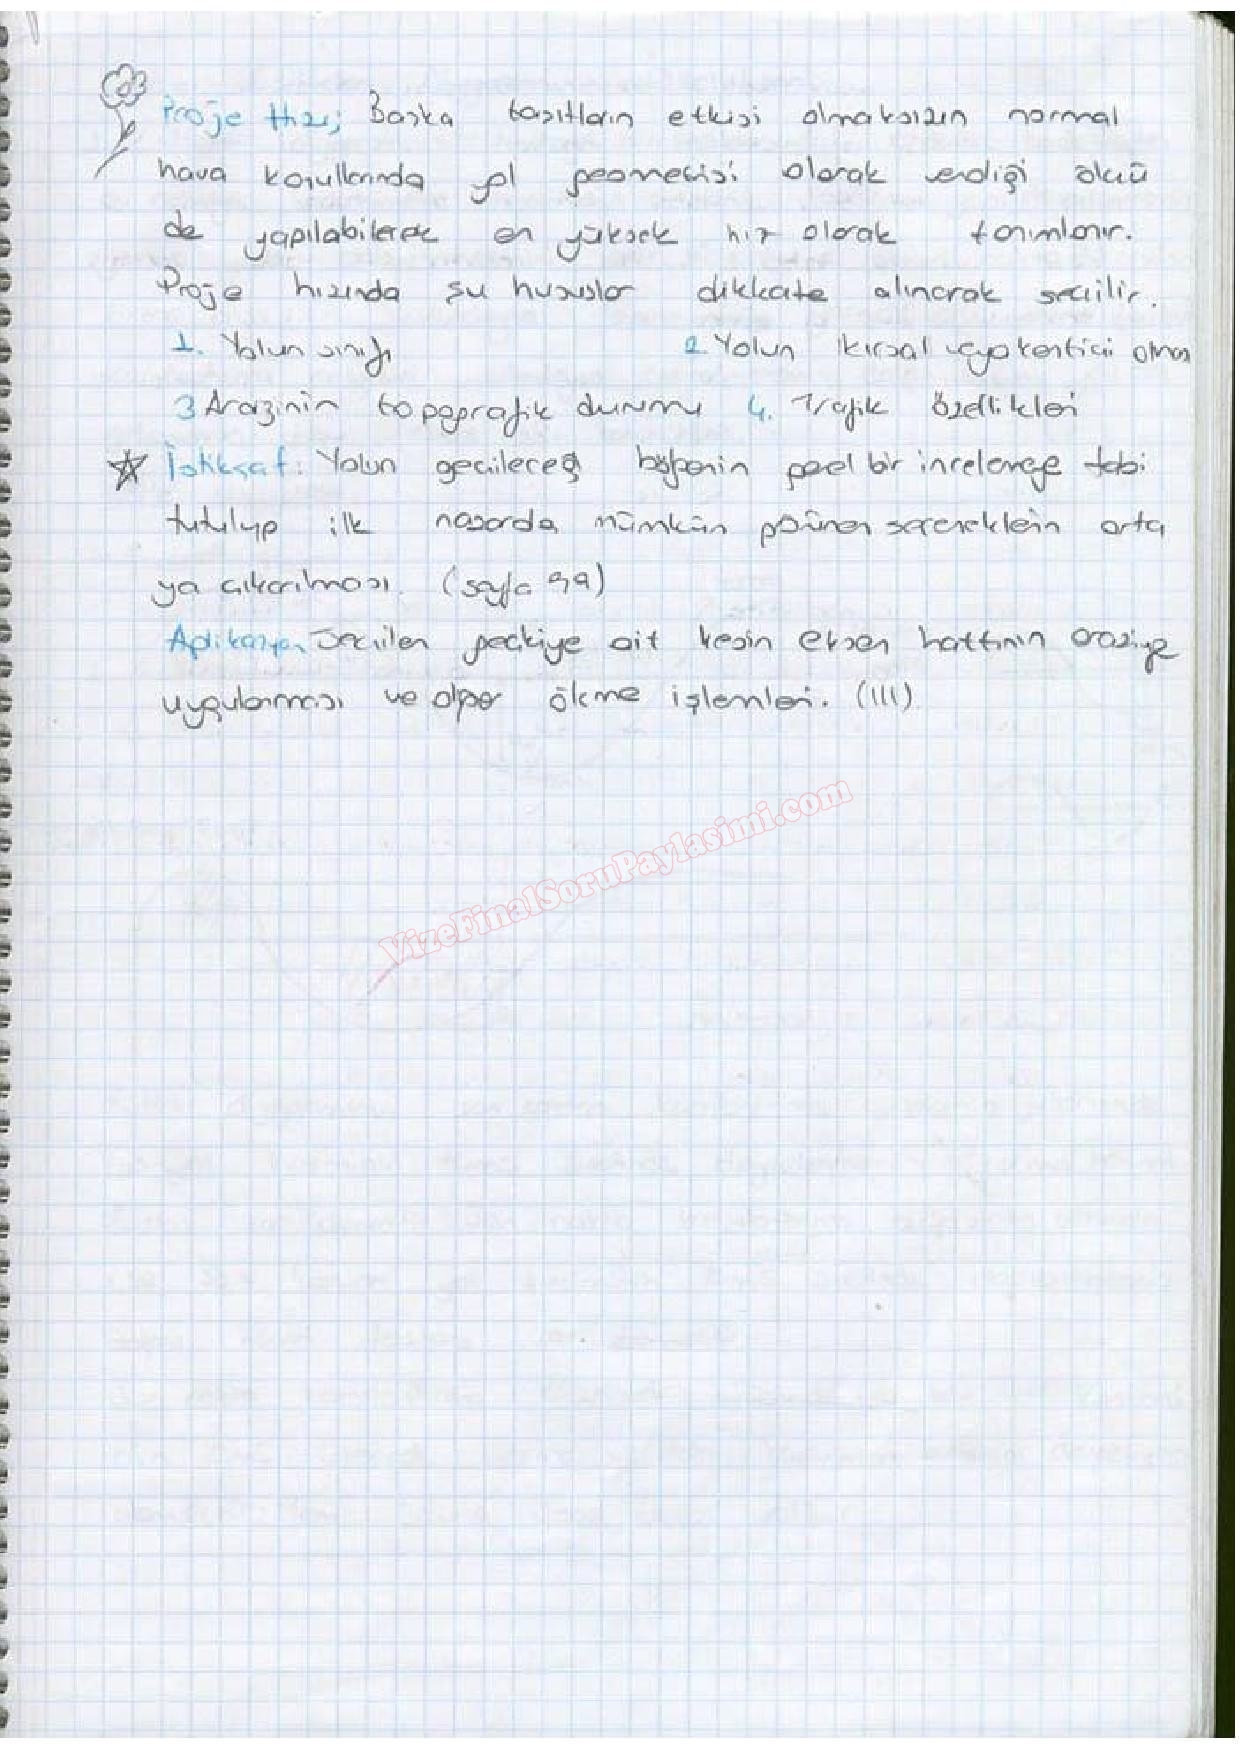 Proje Hızı; Başka taşıtların etkisi olmaksızın normal
hava koşullarında yol geometrisi olarak verdiği ölçü
de yapılabilecek en yüksek hız olarak tanımlanır.
Proje hızında şu hususlar dikkate alınarak seçilir.
1. Yolun sınıfı 2. Yolun kırsal veya kentiçi olması
3 Arazinin topografik durumu 4. Trafik özellikleri
İstikşaf: Yolun geçileceği bölgenin genel bir incelemeye tabi
tutulup ilk nazarda mümkün görünen seçeneklerin orta
ya çıkarılması. (sayfa 99)
Aplikasyon Seçilen geçkiye ait kesin eksen hattının araziye
uygulanması ve diğer ölçme işlemleri. (111)
VizeFinalSoruPaylasimi.com